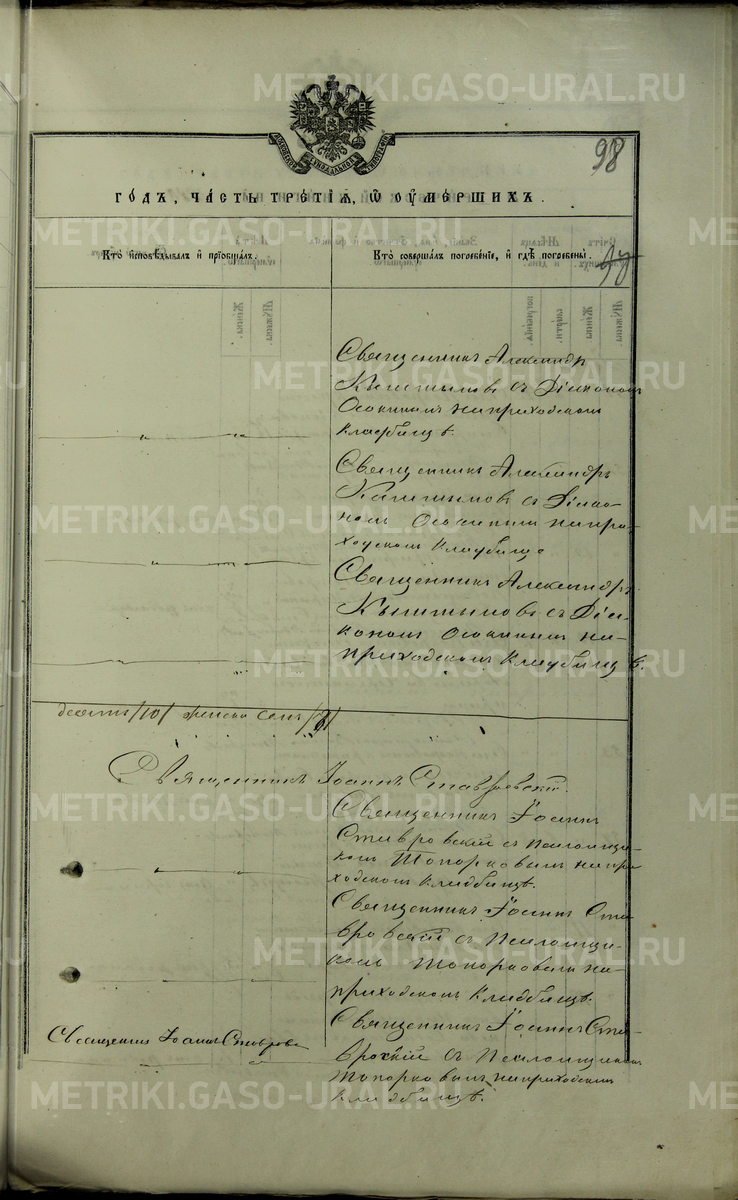 METRIKI.GASO-URAL.RU
98
годъ, часть третїѧ, ѡ оумершихъ.
Кто исповѣдывалъ и прїобщалъ.
Кто совершалъ погребенїе, и гдѣ погребены.
98
Священникъ Александръ
Кыштымовъ съ Діакономъ
Осокинымъ на приходскомъ
кладбищѣ.
Священникъ Александръ
Кыштымовъ съ Діако-
номъ Осокинымъ на при-
ходскомъ кладбищѣ
Священникъ Александръ
Кыштымовъ съ Діа-
кономъ Осокинымъ на
приходскомъ кладбищѣ.
десять /10/ женска семь /7/
Священникъ Іоаннъ Ставровскій.
Священникъ Іоаннъ
Ставровскій съ Псаломщи-
комъ Топорковымъ на при-
ходскомъ кладбищѣ.
Священникъ Іоаннъ Став-
ровскій съ Псаломщи-
комъ Топорковымъ на
приходскомъ кладбищѣ.
Священник Іоаннъ Ставровс
Священникъ Іоаннъ Став-
ровскій съ Псаломщикомъ
Топорковымъ на приходскомъ
кладбищѣ.